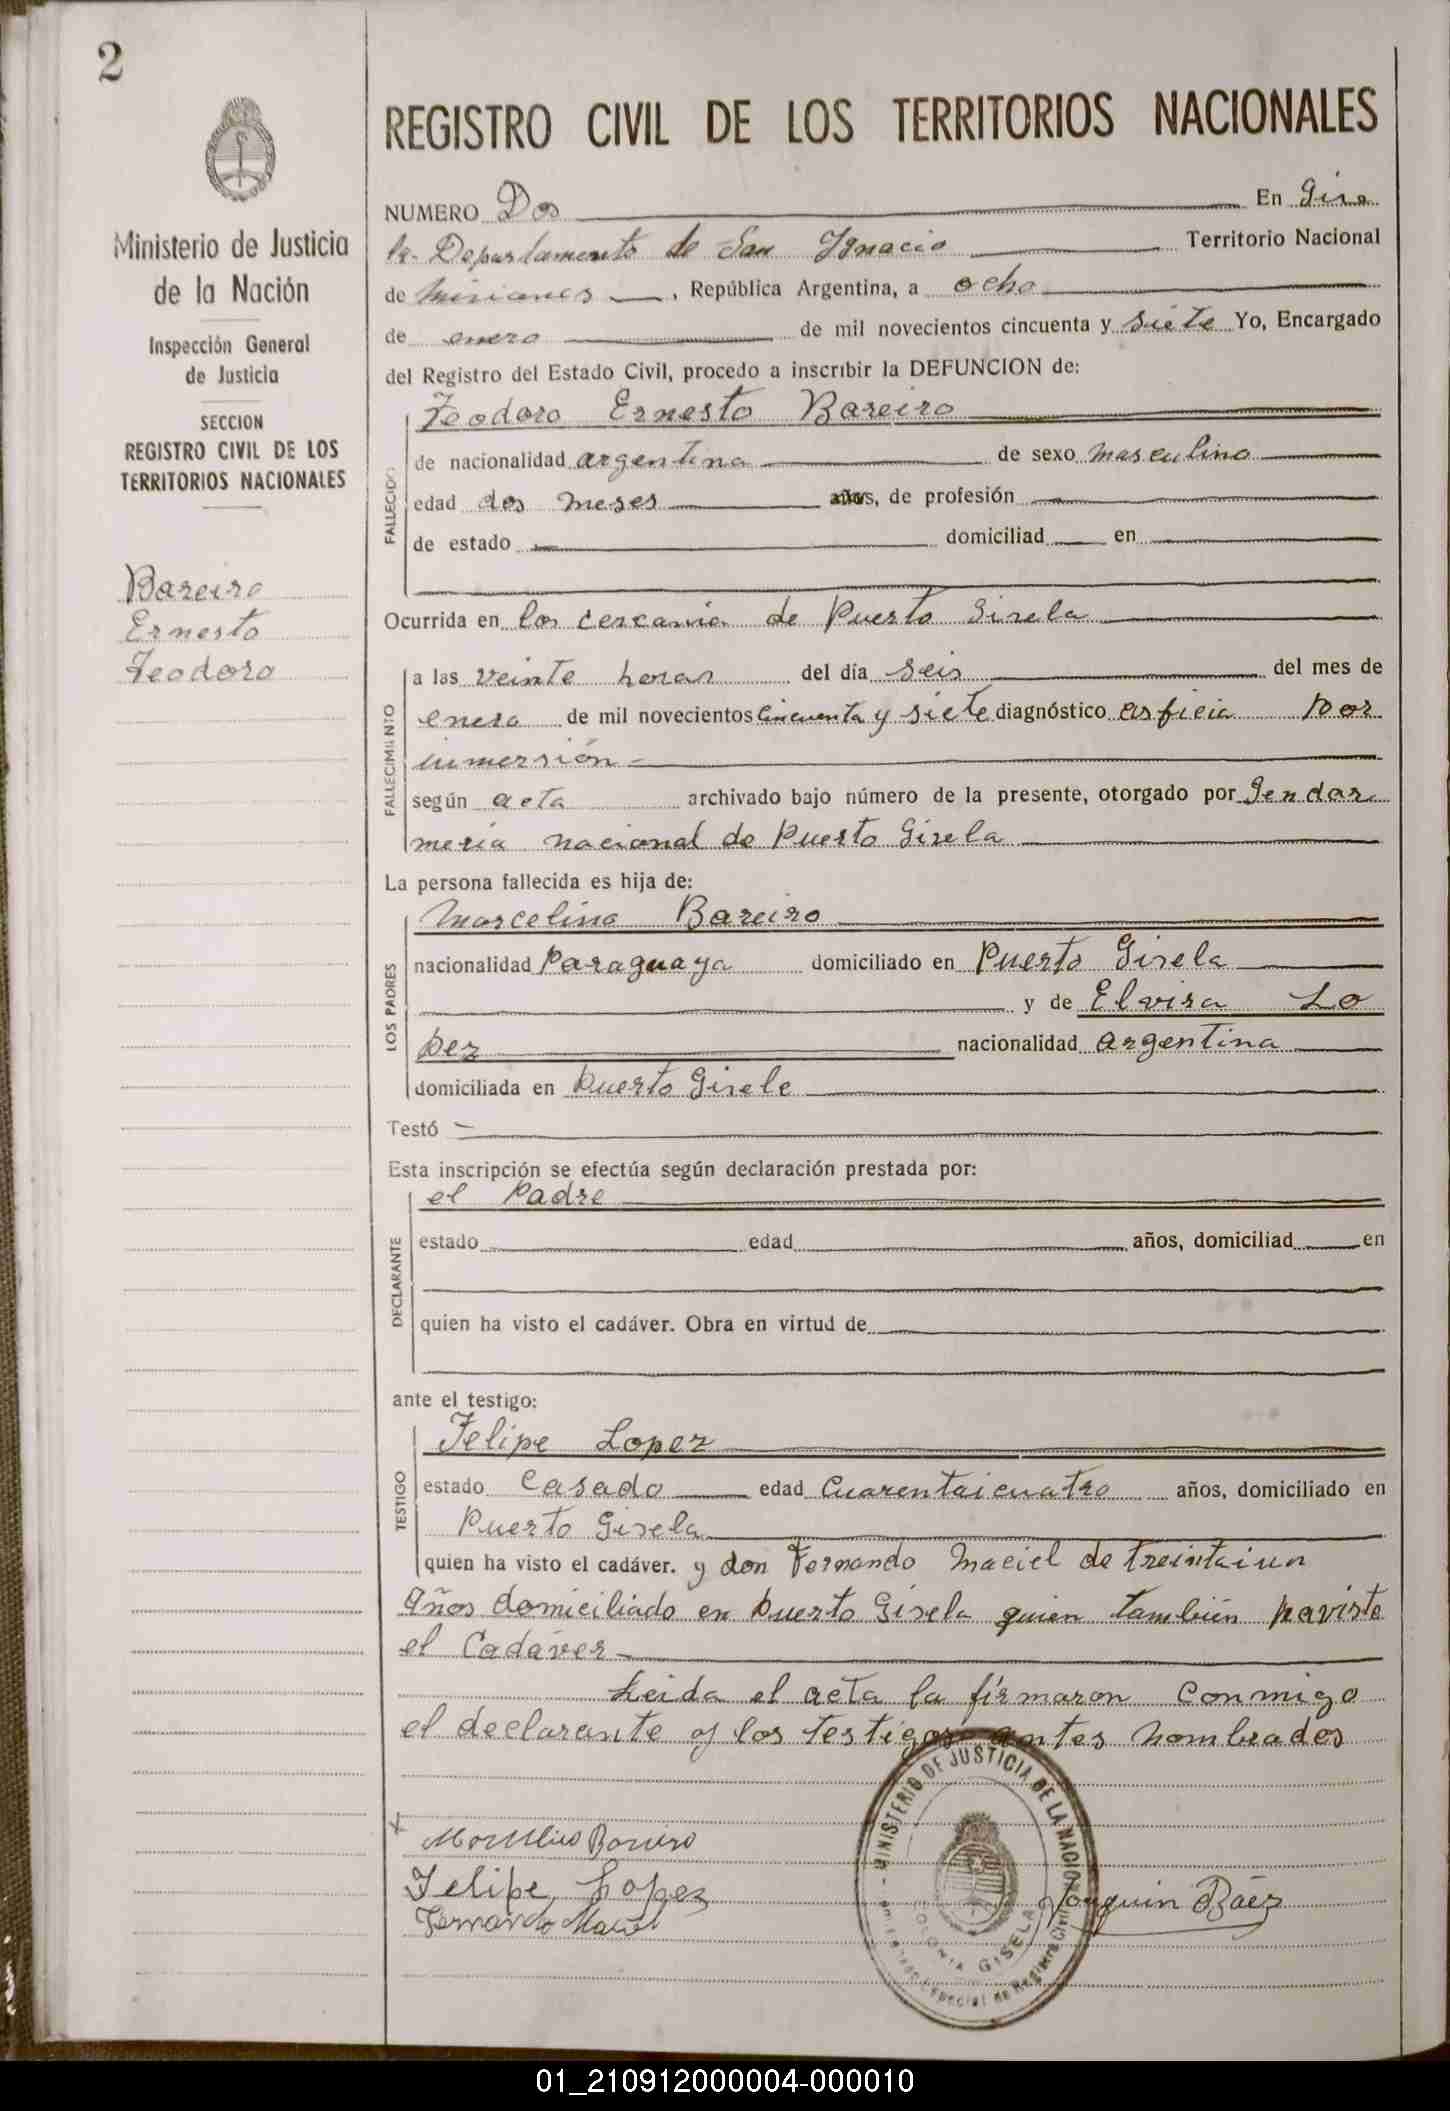 2
REGISTRO CIVIL DE LOS TERRITORIOS NACIONALES
Ministerio de Justicia
de la Nación
Inspección General
de Justicia
SECCION
REGISTRO CIVIL DE LOS
TERRITORIOS NACIONALES
Bareiro
Ernesto
Teodoro
NUMERO Dos En Gise
la. Departamento de San Ignacio Territorio Nacional
de Misiones, República Argentina, a ocho
de enero de mil novecientos cincuenta y siete Yo, Encargado
del Registro del Estado Civil, procedo a inscribir la DEFUNCION de:
Teodoro Ernesto Bareiro
FALLECIDO
de nacionalidad argentina de sexo masculino
edad dos meses años, de profesión
de estado domiciliad en
Ocurrida en las cercania de Puerto Gisela
FALLECIMIENTO
a las veinte horas del día seis del mes de
enero de mil novecientos cincuenta y siete diagnóstico asficia por
inmersión
según acta archivado bajo número de la presente, otorgado por Gendar
meria nacional de Puerto Gisela
La persona fallecida es hija de:
LOS PADRES
Marcelino Bareiro
nacionalidad Paraguaya domiciliado en Puerto Gisela
y de Elvira Lo
pez nacionalidad argentina
domiciliada en Puerto Gisele
Testó
Esta inscripción se efectúa según declaración prestada por:
DECLARANTE
el Padre
estado edad años, domiciliad en
quien ha visto el cadáver. Obra en virtud de
ante el testigo:
TESTIGO
Felipe Lopez
estado Casado edad Cuarentaicuatro años, domiciliado en
Puerto Gisela
quien ha visto el cadáver. y don Fernando Maciel de treintaiun
Años domiciliado en Puerto Gisela quien también haviste
el Cadáver
Leida el acta la firmaron conmigo
el declarante y los testigos antes nombrados
Marcelino Bareiro
Felipe Lopez
Fernando Maciel
Joaquin Báez
MINISTERIO DE JUSTICIA DE LA NACION
COLONIA GISELA
Especial de Registro Civil
01_210912000004-000010